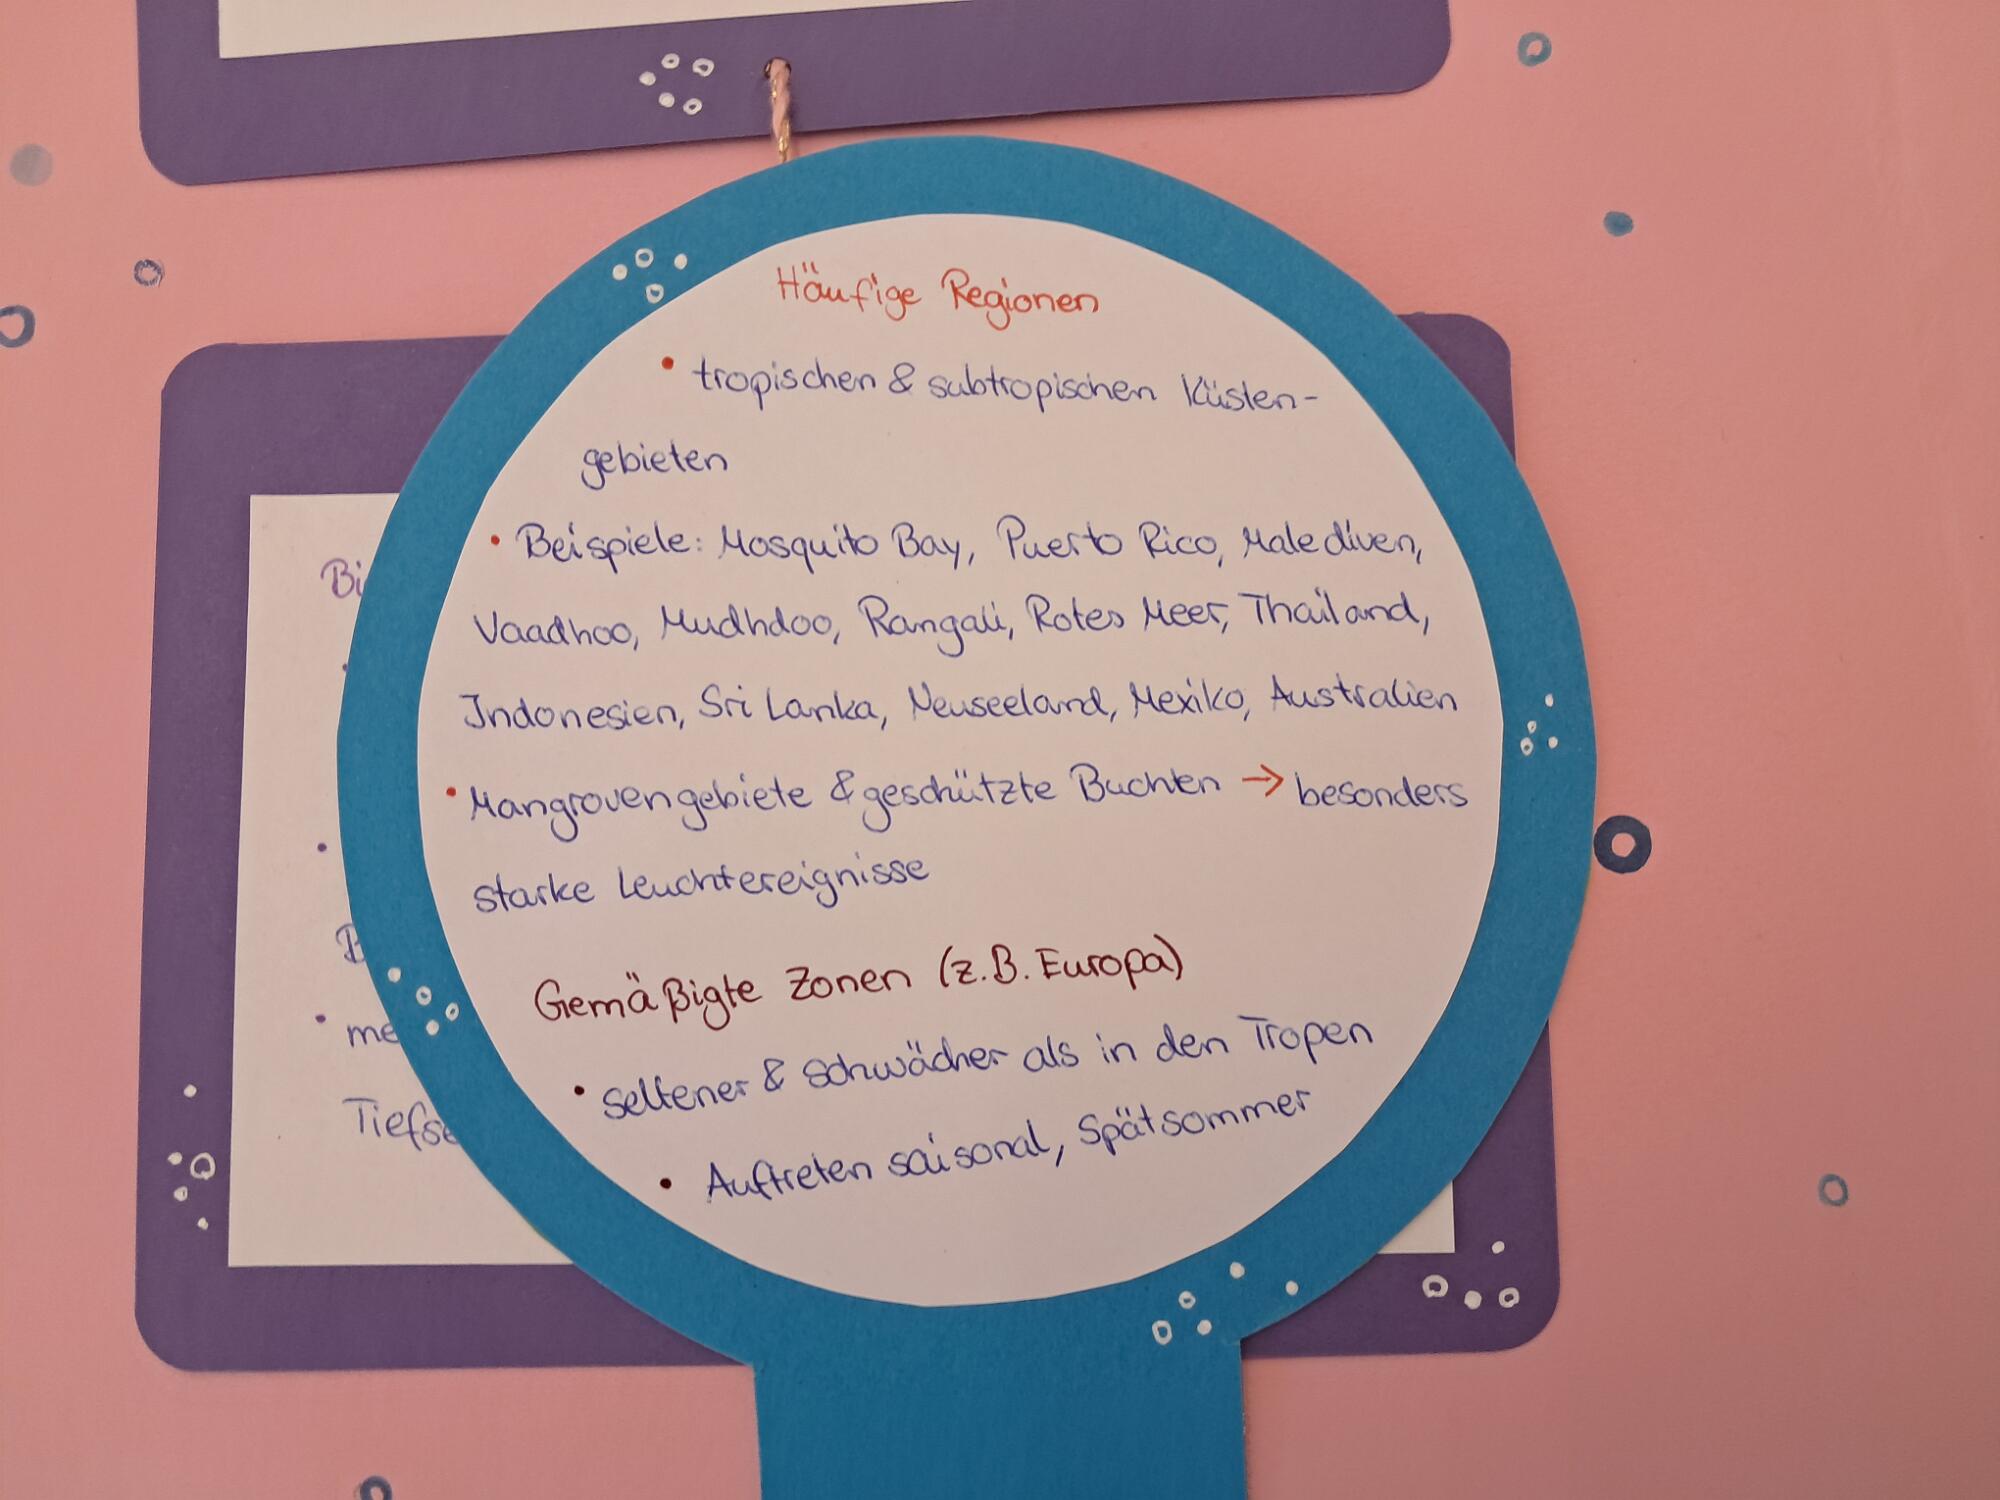 Häufige Regionen
• tropischen & subtropischen Küsten-
gebieten
• Beispiele: Mosquito Bay, Puerto Rico, Malediven,
Vaadhoo, Mudhdoo, Rangali, Rotes Meer, Thailand,
Indonesien, Sri Lanka, Neuseeland, Mexiko, Australien
• Mangrovengebiete & geschützte Buchten → besonders
starke Leuchtereignisse
Gemäßigte Zonen (z.B. Europa)
• seltener & schwächer als in den Tropen
• Auftreten saisonal, Spätsommer